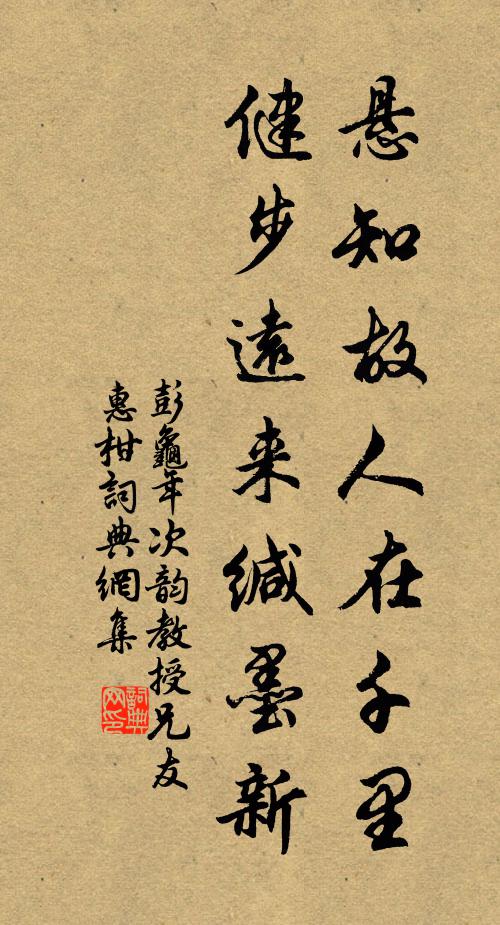 悬知故人在千里
健步遠来缄墨新
彭龜年次韵教授兄友
惠柑詞典網集
詞典网印